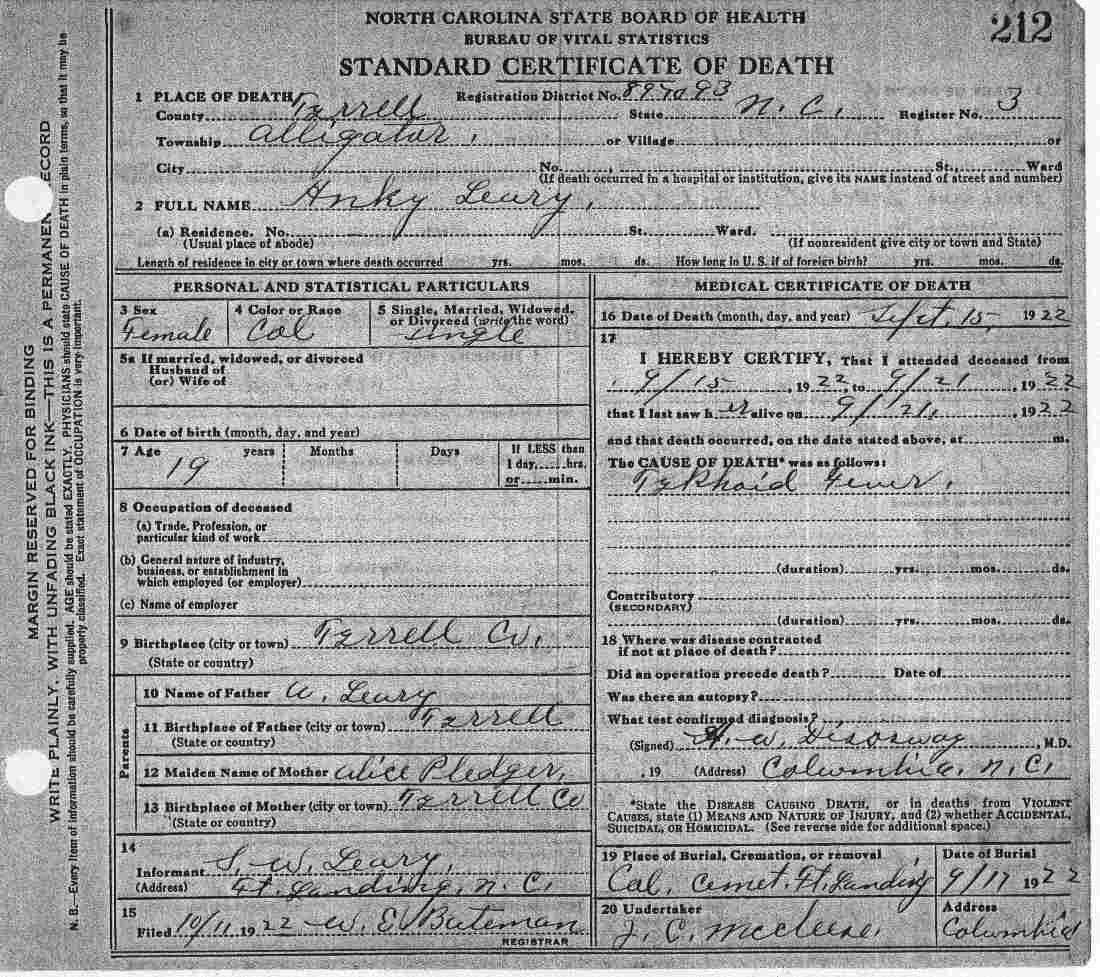 NORTH CAROLINA STATE BOARD OF HEALTH
BUREAU OF VITAL STATISTICS
212
STANDARD CERTIFICATE OF DEATH
1 PLACE OF DEATH Registration District No. 897093
County Tyrrell State N. C. Register No. 3
Township Alligator, or Village or
City No. , St., Ward
(If death occurred in a hospital or institution, give its NAME instead of street and number)
2 FULL NAME Anky Leary,
(a) Residence. No. St. Ward.
(Usual place of abode) (If nonresident give city or town and State)
Length of residence in city or town where death occurred yrs. mos. ds. How long in U. S. if of foreign birth? yrs. mos. ds.
PERSONAL AND STATISTICAL PARTICULARS
3 Sex 4 Color or Race 5 Single, Married, Widowed,
or Divorced (write the word)
Female Col Single
5a If married, widowed, or divorced
Husband of
(or) Wife of
6 Date of birth (month, day, and year)
7 Age 19 years Months Days If LESS than
1 day,......hrs.
or......min.
8 Occupation of deceased
(a) Trade, Profession, or
particular kind of work
(b) General nature of industry,
business, or establishment in
which employed (or employer)
(c) Name of employer
9 Birthplace (city or town) Tyrrell Co.
(State or country)
Parents
10 Name of Father W. Leary
11 Birthplace of Father (city or town) Tyrrell
(State or country)
12 Maiden Name of Mother Alice Pledger,
13 Birthplace of Mother (city or town) Tyrrell Co
(State or country)
14
Informant S. W. Leary,
(Address) Ft. Landing, N. C.
15
Filed 10/11 1922 W. E. Bateman
REGISTRAR
MEDICAL CERTIFICATE OF DEATH
16 Date of Death (month, day, and year) Sept. 15, 1922
17
I HEREBY CERTIFY, That I attended deceased from
9/15, 1922, to 9/21, 1922
that I last saw her alive on 9/21, 1922
and that death occurred, on the date stated above, at m.
The CAUSE OF DEATH* was as follows:
Typhoid Fever.
(duration) yrs. mos. ds.
Contributory
(SECONDARY)
(duration) yrs. mos. ds.
18 Where was disease contracted
if not at place of death?
Did an operation precede death? Date of
Was there an autopsy?
What test confirmed diagnosis?
(Signed) H. W. Disosway, M.D.
, 19 (Address) Columbia, N. C.
*State the DISEASE CAUSING DEATH, or in deaths from VIOLENT
CAUSES, state (1) MEANS AND NATURE OF INJURY, and (2) whether ACCIDENTAL,
SUICIDAL, OR HOMICIDAL. (See reverse side for additional space.)
19 Place of Burial, Cremation, or removal Date of Burial
Col. Cemet. Ft. Landing 9/17 1922
20 Undertaker Address
J. C. McCleese. Columbia
MARGIN RESERVED FOR BINDING
WRITE PLAINLY, WITH UNFADING BLACK INK—THIS IS A PERMANEN ECORD
N. B.—Every item of information should be carefully supplied. AGE should be stated EXACTLY. PHYSICIANS should state CAUSE OF DEATH in plain terms, so that it may be
properly classified. Exact statement of OCCUPATION is very important.